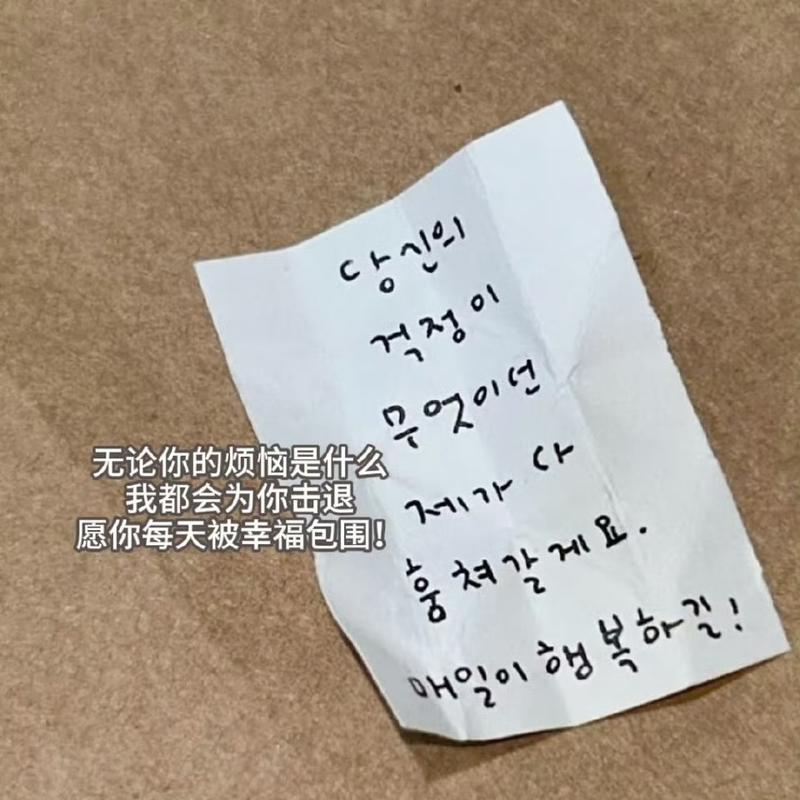 당신의
걱정이
무엇이던
제가 다
훔쳐갈게요.
매일이 행복하길!
无论你的烦恼是什么
我都会为你击退
愿你每天被幸福包围!